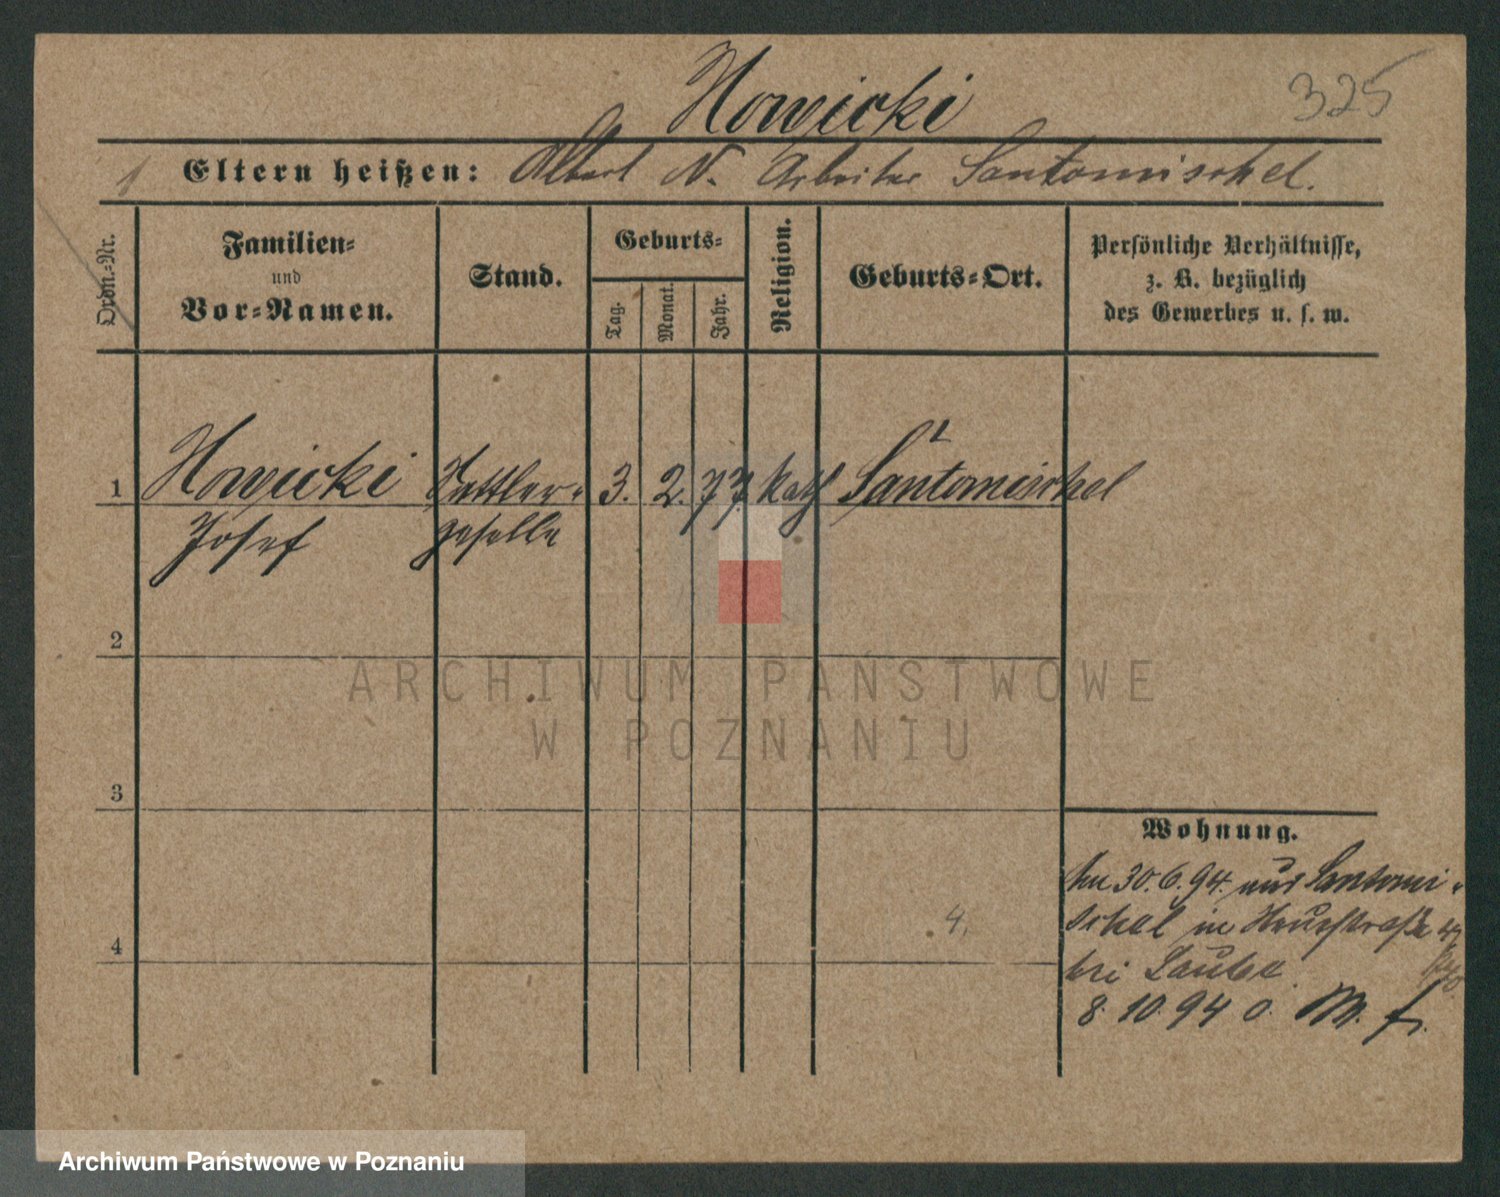 Nowicki
325
Eltern heißen: Albert N. Arbeiter Santomischel.
Ordn.-Nr.
Familien-
und
Vor-Namen.
Stand.
Geburts-
Tag.
Monat.
Jahr.
Religion.
Geburts-Ort.
Persönliche Verhältnisse,
z. B. bezüglich
des Gewerbes u. s. w.
1 Nowicki Sattler- 3. 2. 77. Kath Santomischel
Josef geselle
2
ARCHIWUM PAŃSTWOWE
W POZNANIU
3
Wohnung.
30.6.94. aus Santomi-
schel in
4.
4
bei Laube
8.10.94 o.
Archiwum Państwowe w Poznaniu